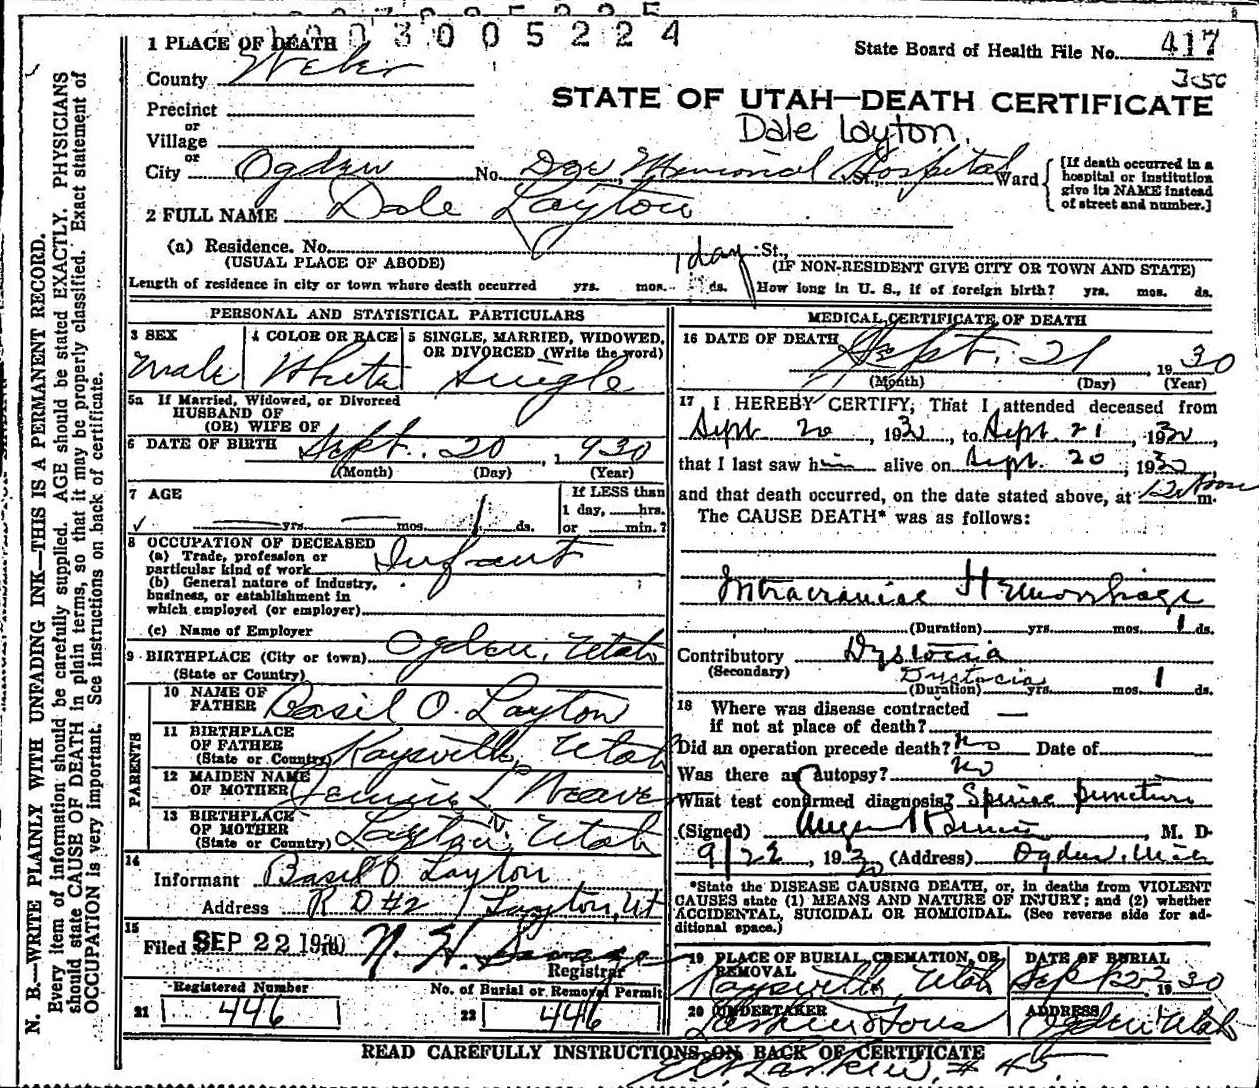 3005224
1 PLACE OF DEATH
State Board of Health File No. 417
County Weber
3500
STATE OF UTAH—DEATH CERTIFICATE
Precinct
or
Village
Dale Layton
or
City Ogden No. Dee Memorial Hospital St., Ward
[If death occurred in a hospital or institution give its NAME instead of street and number.]
2 FULL NAME Dale Layton
(a) Residence. No. St.,
(USUAL PLACE OF ABODE) (IF NON-RESIDENT GIVE CITY OR TOWN AND STATE)
Length of residence in city or town where death occurred yrs. mos. 1 day ds. How long in U. S., if of foreign birth? yrs. mos. ds.
PERSONAL AND STATISTICAL PARTICULARS
3 SEX Male
4 COLOR OR RACE White
5 SINGLE, MARRIED, WIDOWED, OR DIVORCED (Write the word) Single
5a If Married, Widowed, or Divorced
HUSBAND OF
(OR) WIFE OF
6 DATE OF BIRTH Sept. 20, 1930
(Month) (Day) (Year)
7 AGE — yrs. — mos. 1 ds.
If LESS than
1 day, hrs.
or min.?
8 OCCUPATION OF DECEASED
(a) Trade, profession or
particular kind of work Infant
(b) General nature of industry,
business, or establishment in
which employed (or employer)
(c) Name of Employer
9 BIRTHPLACE (City or town) Ogden, Utah
(State or Country)
PARENTS
10 NAME OF
FATHER Basil O. Layton
11 BIRTHPLACE
OF FATHER
(State or Country) Kaysville, Utah
12 MAIDEN NAME
OF MOTHER L Weaver
13 BIRTHPLACE
OF MOTHER
(State or Country) Layton, Utah
14
Informant Basil O Layton
Address R D #2 Layton, Ut
15
Filed SEP 22 1930 Registrar
Registered Number
21 446
No. of Burial or Removal Permit
22 446
MEDICAL CERTIFICATE OF DEATH
16 DATE OF DEATH Sept. 21, 1930
(Month) (Day) (Year)
17 I HEREBY CERTIFY, That I attended deceased from
Sept. 20, 1930, to Sept. 21, 1930,
that I last saw him alive on Sept. 20, 1930
and that death occurred, on the date stated above, at 12 Noon m.
The CAUSE DEATH* was as follows:
Intracranial Hemorrhage
(Duration) yrs. mos. 1 ds.
Contributory Dystocia
(Secondary) Dystocia
(Duration) yrs. mos. 1 ds.
18 Where was disease contracted
if not at place of death? —
Did an operation precede death? No Date of
Was there an autopsy? No
What test confirmed diagnosis? Spinal puncture
(Signed) M. D.
9/22, 1930 (Address) Ogden, Utah
*State the DISEASE CAUSING DEATH, or, in deaths from VIOLENT
CAUSES state (1) MEANS AND NATURE OF INJURY; and (2) whether
ACCIDENTAL, SUICIDAL OR HOMICIDAL. (See reverse side for ad-
ditional space.)
19 PLACE OF BURIAL, CREMATION, OR
REMOVAL
Kaysville, Utah
DATE OF BURIAL
Sept 22 1930
20 UNDERTAKER
Larkin & Sons
ADDRESS
Ogden Utah
READ CAREFULLY INSTRUCTIONS ON BACK OF CERTIFICATE
Larkin, # 45
N. B.—WRITE PLAINLY WITH UNFADING INK—THIS IS A PERMANENT RECORD.
Every item of information should be carefully supplied. AGE should be stated EXACTLY. PHYSICIANS
should state CAUSE OF DEATH in plain terms, so that it may be properly classified. Exact statement of
OCCUPATION is very important. See instructions on back of certificate.